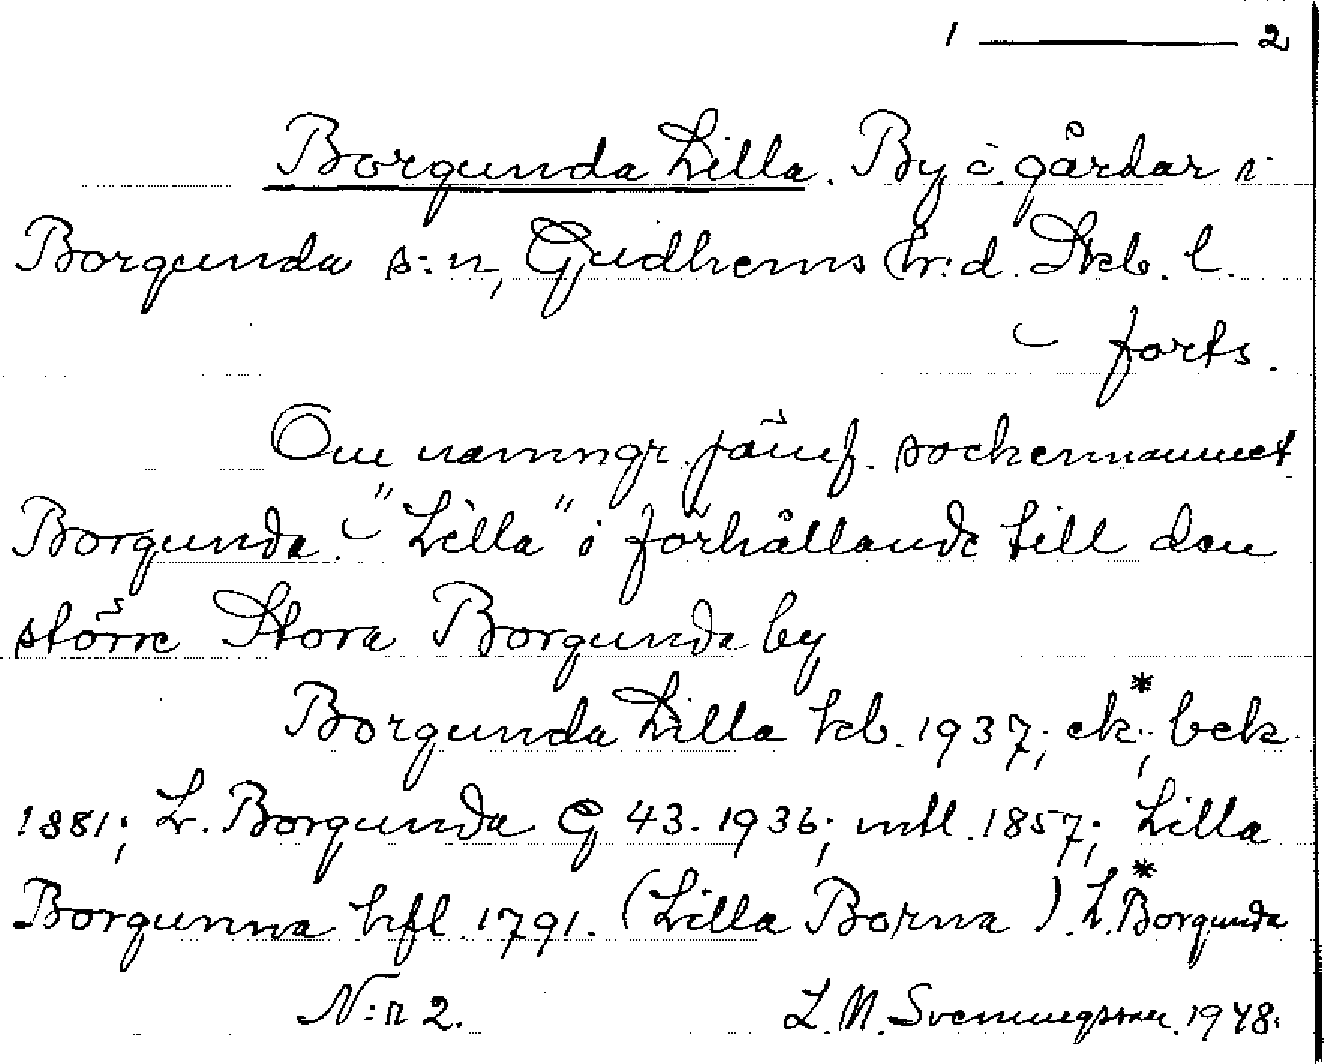 1 — 2
Borgunda Lilla. By o. gårdar i
Borgunda s:n, Gudhems h:d. Skb. l.
– forts.
Om namngr. jämf. sockennamnet
Borgunda. – "Lilla" i förhållande till den
större Stora Borgunda by
Borgunda Lilla kb. 1937; ek*; bek
1881; L. Borgunda G 43. 1936; mtl. 1857; Lilla
Borgunna hfl. 1791. (Lilla Borna). *L. Borgunda
N:r 2. L. M. Svenungsson. 1948.